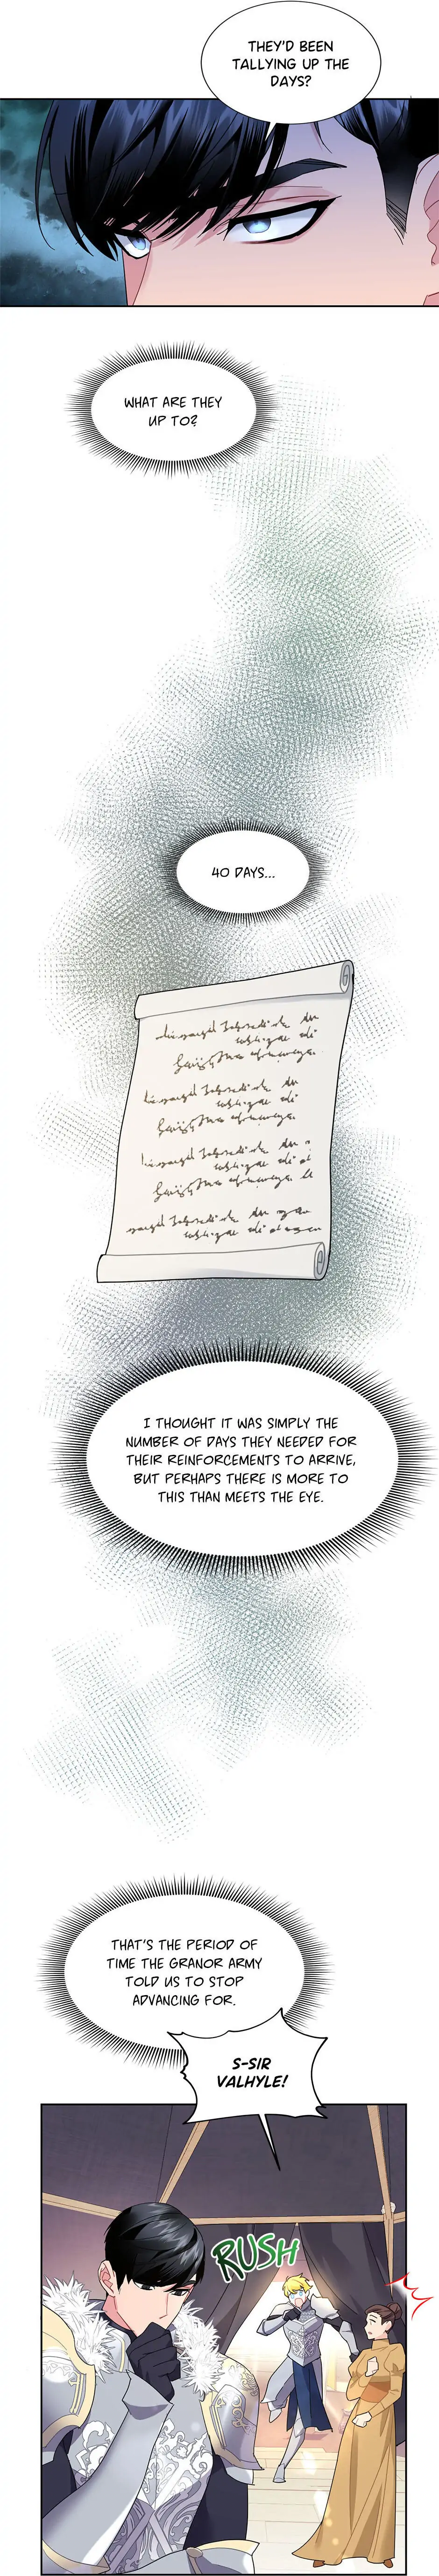 THEY'D BEEN
TALLYING UP THE
DAYS?
WHAT ARE THEY
UP TO?
40 DAYS...
I THOUGHT IT WAS SIMPLY THE
NUMBER OF DAYS THEY NEEDED FOR
THEIR REINFORCEMENTS TO ARRIVE,
BUT PERHAPS THERE IS MORE TO
THIS THAN MEETS THE EYE.
THAT'S THE PERIOD OF
TIME THE GRANOR ARMY
TOLD US TO STOP
ADVANCING FOR.
S-SIR
VALHYLE!
RUSH